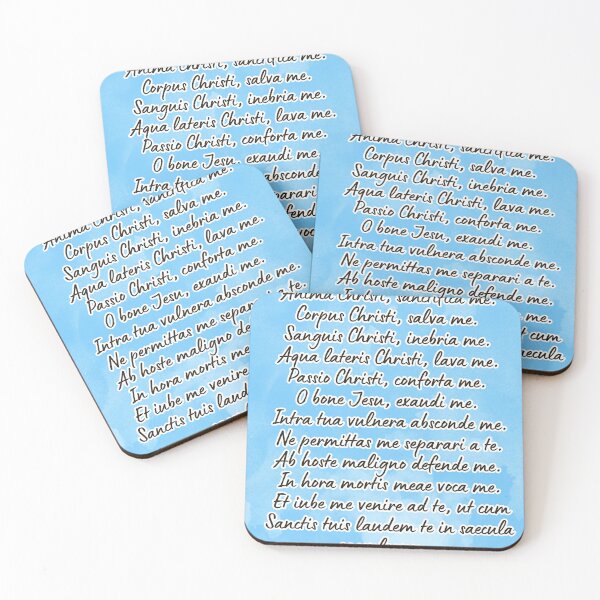 Anima Christi, sanctifica me.
Corpus Christi, salva me.
Sanguis Christi, inebria me.
Aqua lateris Christi, lava me.
Passio Christi, conforta me.
O bone Jesu, exaudi me.
Intra absconde
separari
defende
voca
Anima Christi, sanctifica me.
Corpus Christi, salva me.
Sanguis Christi, inebria me.
Aqua lateris Christi, lava me.
Passio Christi, conforta me.
O bone Jesu, exaudi me.
Intra tua vulnera absconde me.
Ne permittas me separari a te.
Ab hoste maligno defende me.
me.
ut cum
saecula
Anima Christi, sanctifica me.
Corpus Christi, salva me.
Sanguis Christi, inebria me.
Aqua lateris Christi, lava me.
Passio Christi, conforta me.
O bone Jesu, exaudi me.
Intra tua vulnera absconde me.
Ne permittas me separari a te.
Ab hoste maligno de
In hora mortis me
Et iube me venire
Sanctis tuis laud
Anima Christi, sanctifica me.
Corpus Christi, salva me.
Sanguis Christi, inebria me.
Aqua lateris Christi, lava me.
Passio Christi, conforta me.
O bone Jesu, exaudi me.
Intra tua vulnera absconde me.
Ne permittas me separari a te.
Ab hoste maligno defende me.
In hora mortis meae voca me.
Et iube me venire ad te, ut cum
Sanctis tuis laudem te in saecula